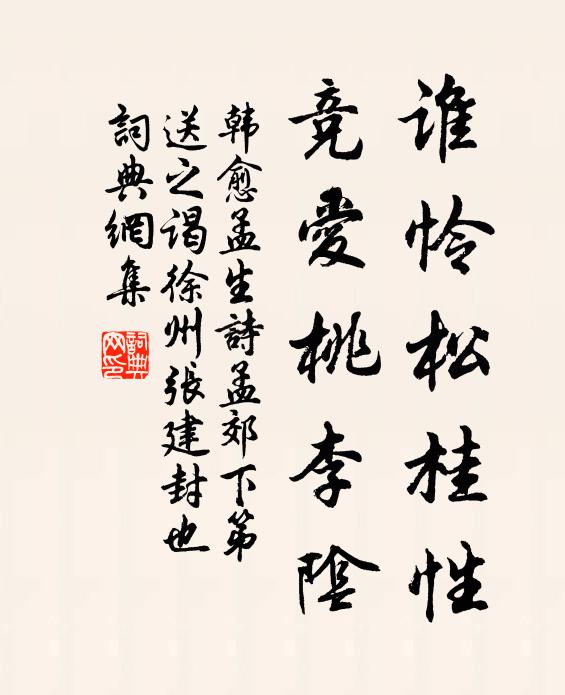 谁怜松桂性
竞爱桃李陰
韩愈孟生詩孟郊下第
送之谒徐州張建封也
詞典網集
詞典
网印